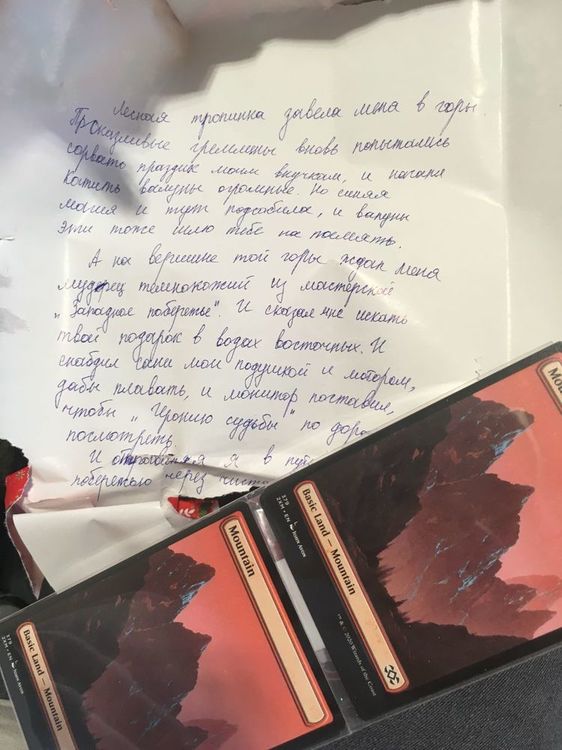 Лесная тропинка завела меня в горы
Проказливые гремлины вновь попытались
сорвать праздник моим внучкам, и начали
катить валуны огромные. Но синяя
магия и тут подсобила, и валуны
эти тоже шлю тебе на посмеять.
А на вершине той горы ждал меня
мудрец темнокожий из мастерской
„Западное побережье". И сказал мне искать
твой подарок в водах восточных. И
снабдил сани мои подушкой и мотором,
дабы плавать, и монитор поставил,
чтобы „Иронию судьбы" по доро
посмотреть.
И я в пут
побережью через чисто
Mountain
Basic Land — Mountain
379
2XM • EN
™ & © 2020 Wizards of the Coast
Mountain
Basic Land — Mountain
379
2XM • EN